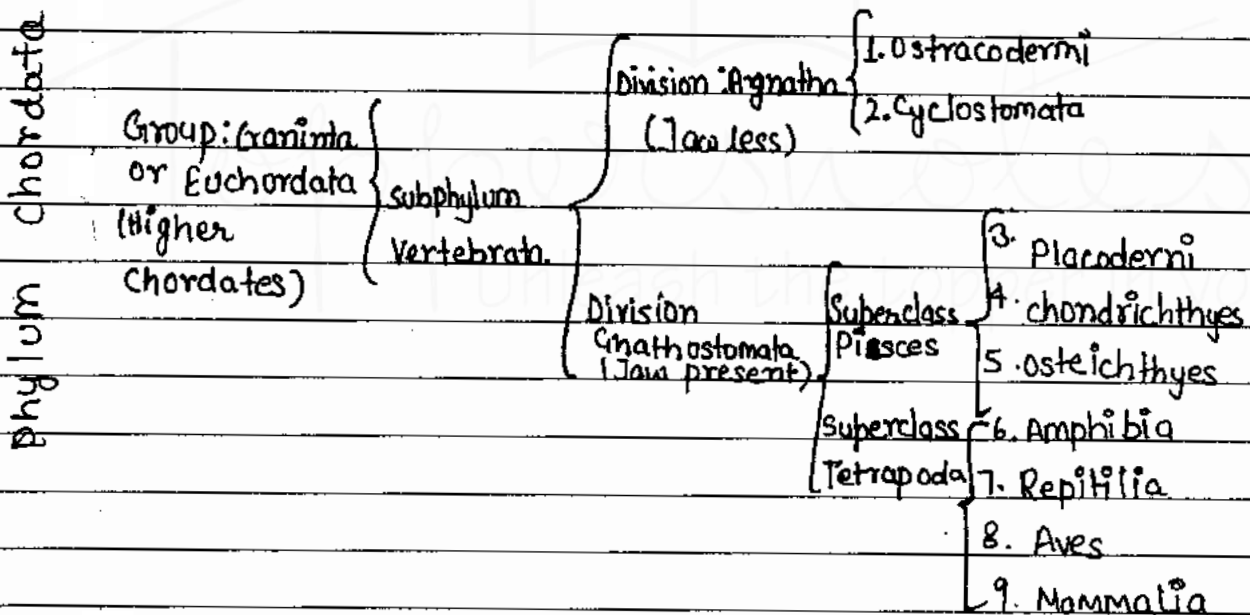 Phylum Chordata
Group: Craninta
or Euchordata
(Higher
Chordates)
Subphylum
Vertebrata.
Division: Agnatha
(Jaw less)
1. Ostracodermi
2. Cyclostomata
Division
Gnathostomata
(Jaw present)
Superclass
Pisces
3. Placoderni
4. chondrichthyes
5. osteichthyes
Superclass
Tetrapoda
6. Amphibia
7. Repitilia
8. Aves
9. Mammalia
Toppersnotes
Unleash the topper in yo